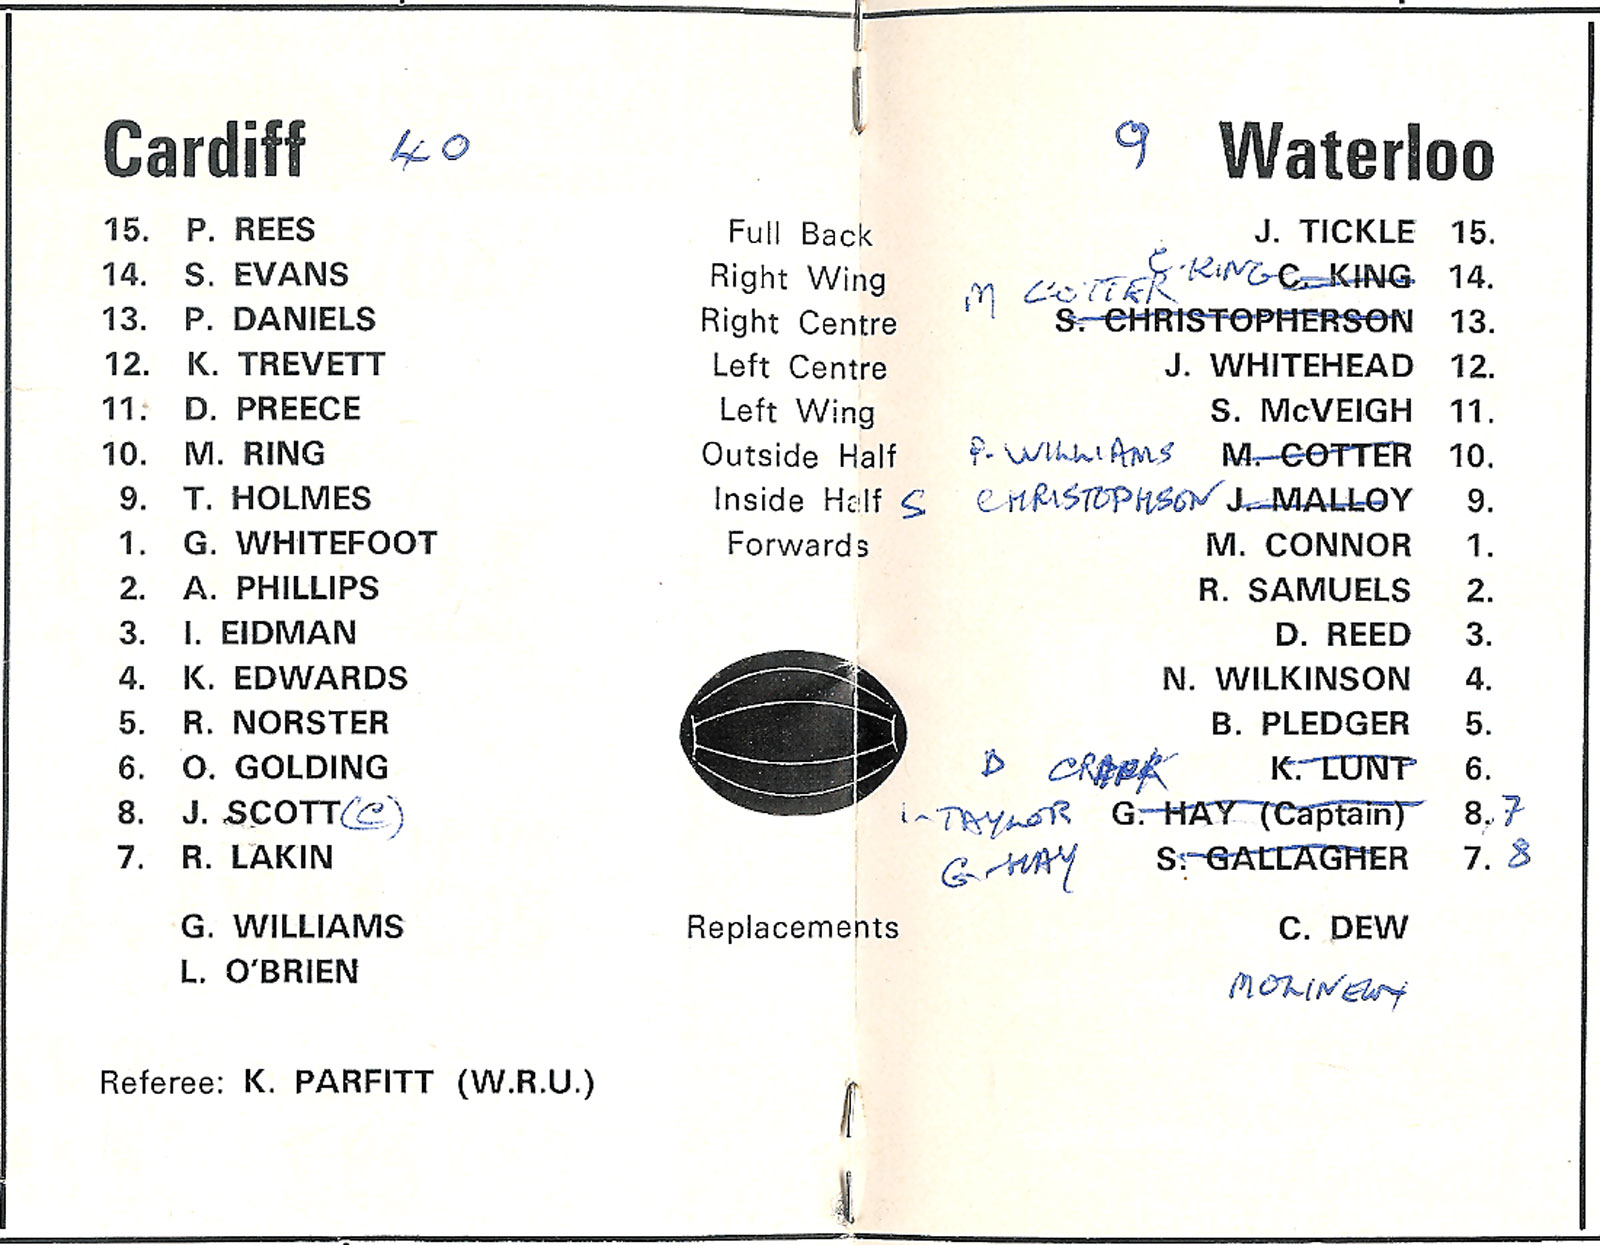 Cardiff 40 9 Waterloo
15. P. REES Full Back J. TICKLE 15.
14. S. EVANS Right Wing C. KING C. KING 14.
13. P. DANIELS Right Centre M COTTER S. CHRISTOPHERSON 13.
12. K. TREVETT Left Centre J. WHITEHEAD 12.
11. D. PREECE Left Wing S. McVEIGH 11.
10. M. RING Outside Half P. WILLIAMS M. COTTER 10.
9. T. HOLMES Inside Half S CHRISTOPHSON J. MALLOY 9.
1. G. WHITEFOOT Forwards M. CONNOR 1.
2. A. PHILLIPS R. SAMUELS 2.
3. I. EIDMAN D. REED 3.
4. K. EDWARDS N. WILKINSON 4.
5. R. NORSTER B. PLEDGER 5.
6. O. GOLDING D K. LUNT 6.
8. J. SCOTT (C) TAYLOR G. HAY (Captain) 8. 7
7. R. LAKIN G HAY S. GALLAGHER 7. 8
G. WILLIAMS Replacements C. DEW
L. O'BRIEN
MOLINEUX
Referee: K. PARFITT (W.R.U.)